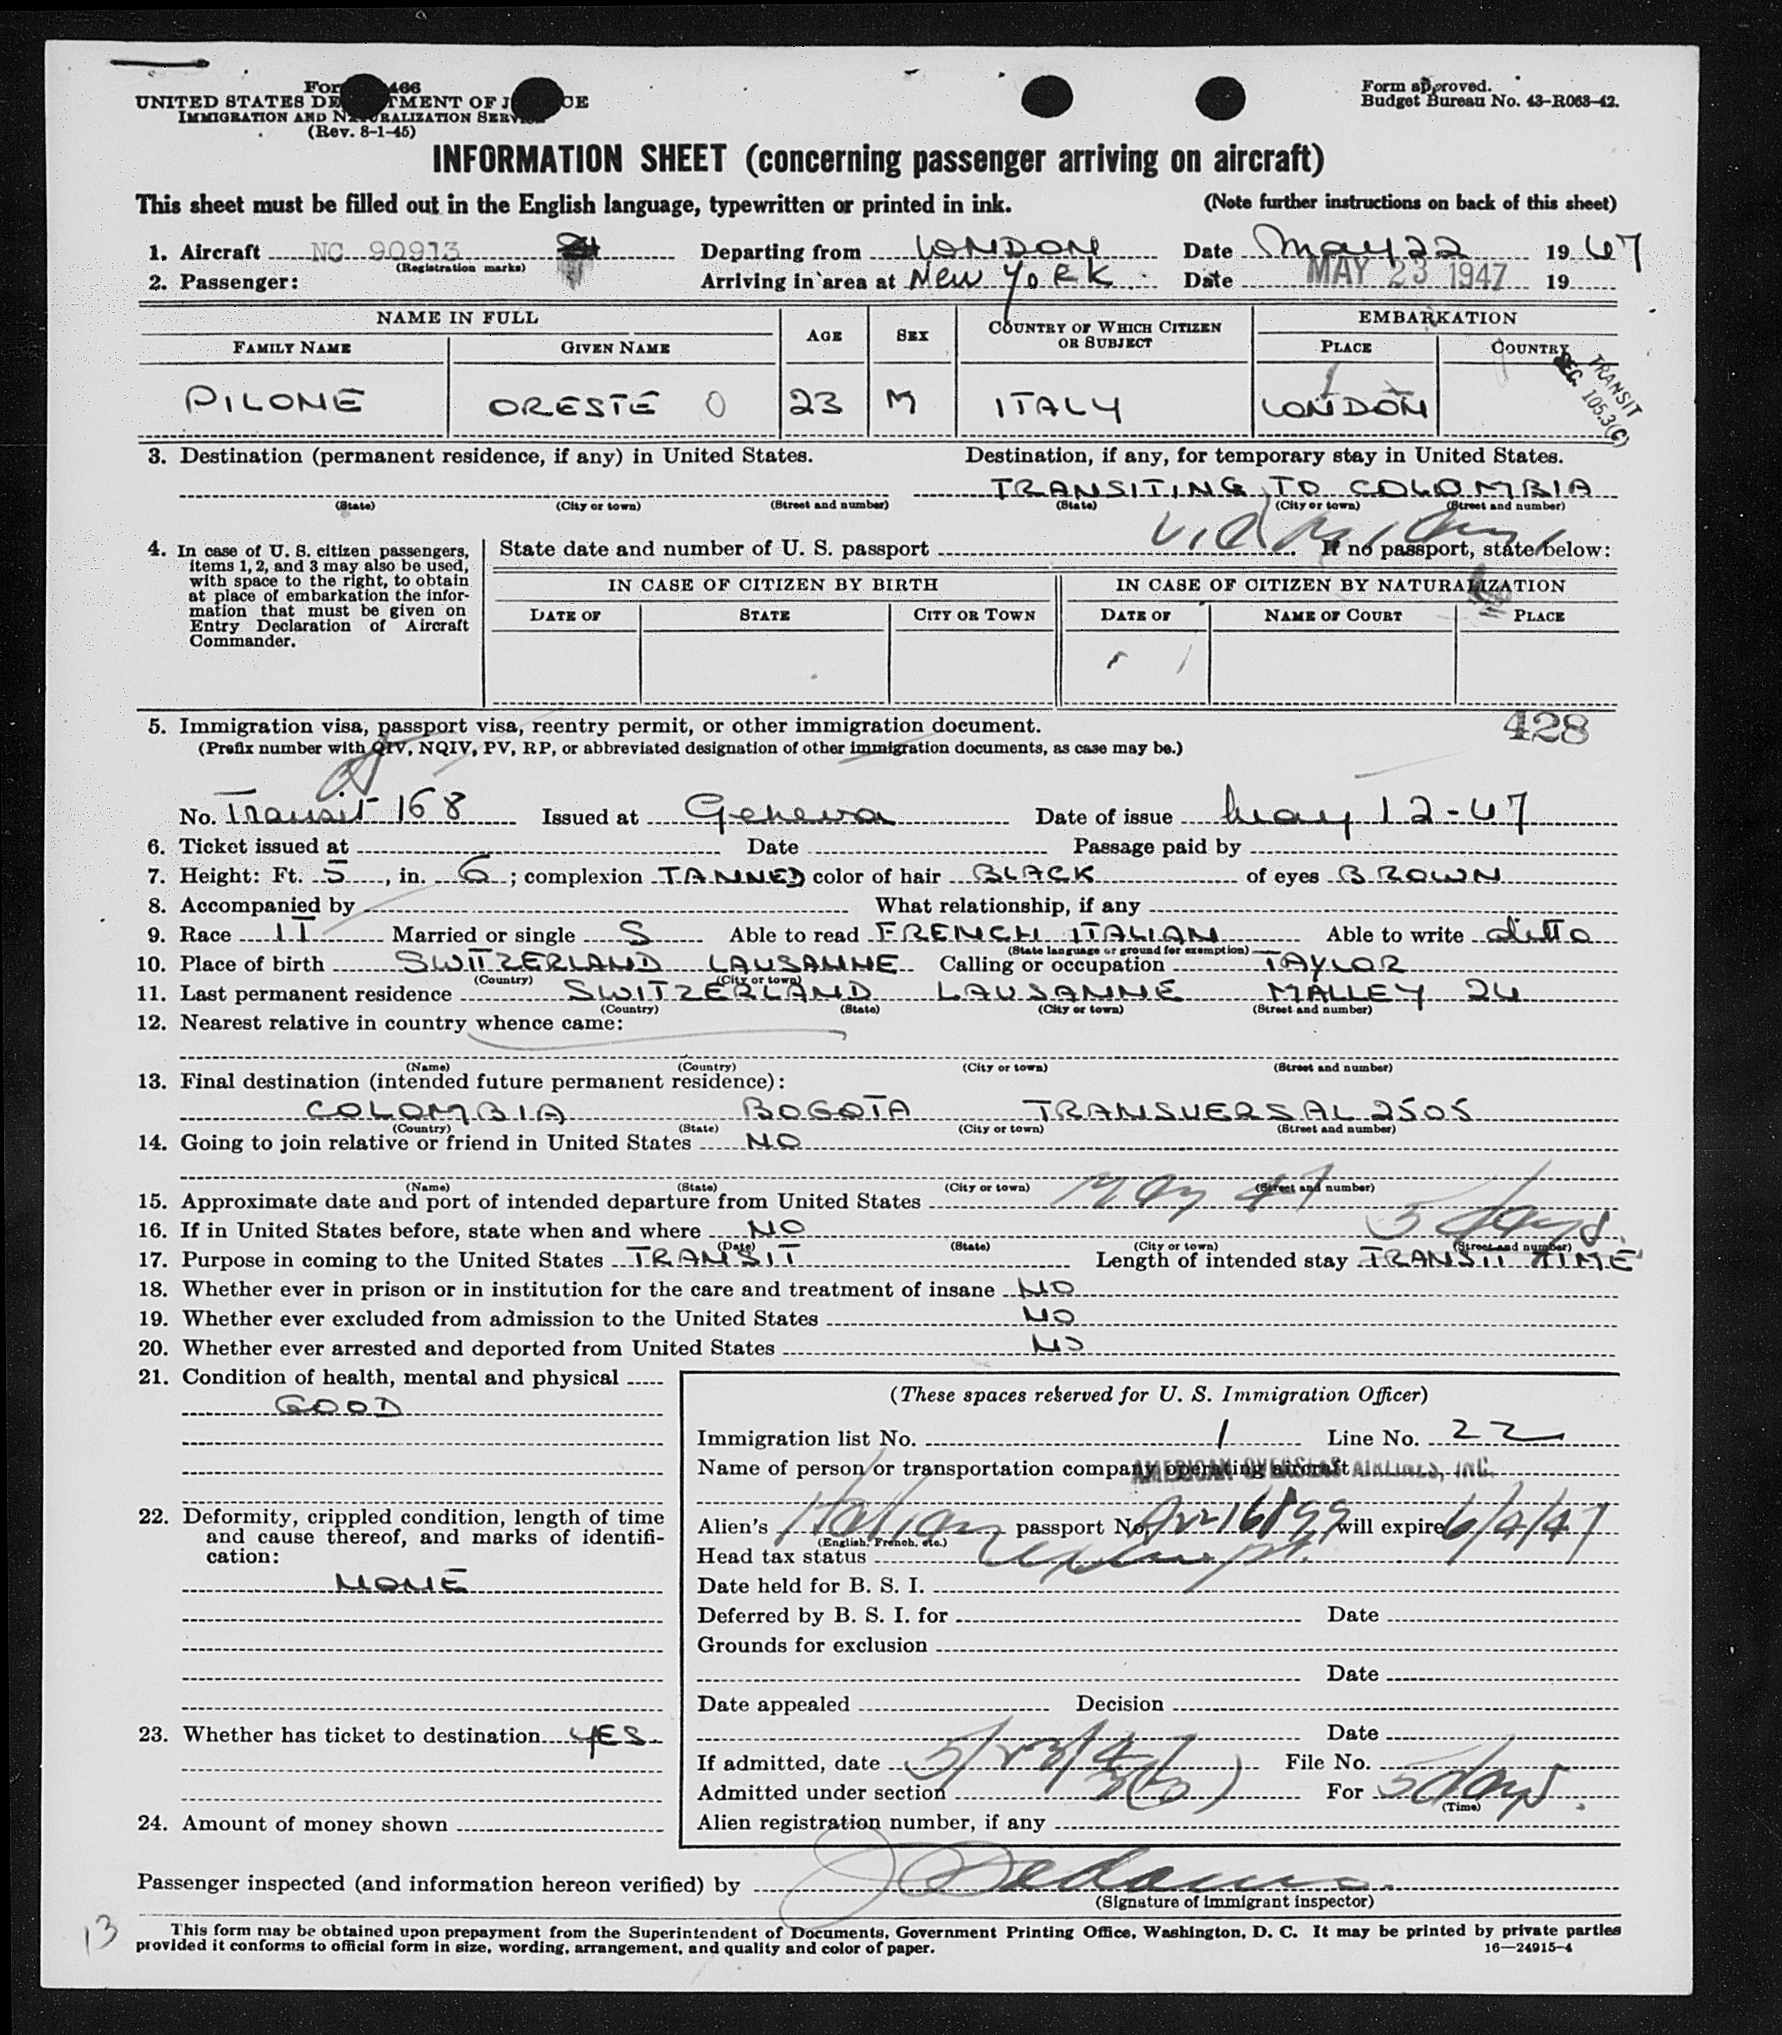 Form I-466
UNITED STATES DEPARTMENT OF JUSTICE
IMMIGRATION AND NATURALIZATION SERVICE
(Rev. 8-1-45)
Form approved.
Budget Bureau No. 43-R063-42.
INFORMATION SHEET (concerning passenger arriving on aircraft)
This sheet must be filled out in the English language, typewritten or printed in ink. (Note further instructions on back of this sheet)
1. Aircraft NC 90913 Departing from LONDON Date May 22 19 47
(Registration marks)
2. Passenger: Arriving in area at New YORK Date MAY 23 1947 19
NAME IN FULL AGE SEX COUNTRY OF WHICH CITIZEN OR SUBJECT EMBARKATION
FAMILY NAME GIVEN NAME PLACE COUNTRY
TRANSIT
SEC. 105.3(C)
PILONE ORESTE O 23 M ITALY LONDON
3. Destination (permanent residence, if any) in United States. Destination, if any, for temporary stay in United States.
TRANSITING TO COLOMBIA
(State) (City or town) (Street and number) (State) (City or town) (Street and number)
via Miami
4. In case of U. S. citizen passengers, items 1, 2, and 3 may also be used, with space to the right, to obtain at place of embarkation the information that must be given on Entry Declaration of Aircraft Commander.
State date and number of U. S. passport If no passport, state below:
IN CASE OF CITIZEN BY BIRTH IN CASE OF CITIZEN BY NATURALIZATION
DATE OF STATE CITY OR TOWN DATE OF NAME OF COURT PLACE
5. Immigration visa, passport visa, reentry permit, or other immigration document. 428
(Prefix number with QIV, NQIV, PV, RP, or abbreviated designation of other immigration documents, as case may be.)
No. Transit 168 Issued at Geneva Date of issue May 12-47
6. Ticket issued at Date Passage paid by
7. Height: Ft. 5, in. 6; complexion TANNED color of hair BLACK of eyes BROWN
8. Accompanied by What relationship, if any
9. Race IT Married or single S Able to read FRENCH ITALIAN Able to write ditto
(State language or ground for exemption)
10. Place of birth SWITZERLAND LAUSANNE Calling or occupation TAYLOR
(Country) (City or town)
11. Last permanent residence SWITZERLAND LAUSANNE MALLEY 24
(Country) (State) (City or town) (Street and number)
12. Nearest relative in country whence came:
(Name) (Country) (City or town) (Street and number)
13. Final destination (intended future permanent residence):
COLOMBIA BOGOTA TRANSVERSAL 2505
(Country) (State) (City or town) (Street and number)
14. Going to join relative or friend in United States NO
(Name) (State) (City or town) (Street and number)
15. Approximate date and port of intended departure from United States May 47
16. If in United States before, state when and where NO 5 days
(Date) (State) (City or town) (Street and number)
17. Purpose in coming to the United States TRANSIT Length of intended stay TRANSIT TIME
18. Whether ever in prison or in institution for the care and treatment of insane NO
19. Whether ever excluded from admission to the United States NO
20. Whether ever arrested and deported from United States NO
21. Condition of health, mental and physical
GOOD
22. Deformity, crippled condition, length of time and cause thereof, and marks of identification:
NONE
23. Whether has ticket to destination YES
24. Amount of money shown
(These spaces reserved for U. S. Immigration Officer)
Immigration list No. 1 Line No. 22
Name of person or transportation company operating aircraft AMERICAN OVERSEAS AIRLINES, INC.
Alien's Italian passport No. will expire 6/4/47
(English, French, etc.)
Head tax status exempt
Date held for B. S. I.
Deferred by B. S. I. for Date
Grounds for exclusion
Date
Date appealed Decision
Date
If admitted, date 5/23/47 File No.
Admitted under section 3(3) For 5 days.
(Time)
Alien registration number, if any
Passenger inspected (and information hereon verified) by
(Signature of immigrant inspector)
13
This form may be obtained upon prepayment from the Superintendent of Documents, Government Printing Office, Washington, D. C. It may be printed by private parties
provided it conforms to official form in size, wording, arrangement, and quality and color of paper. 16—24915-4